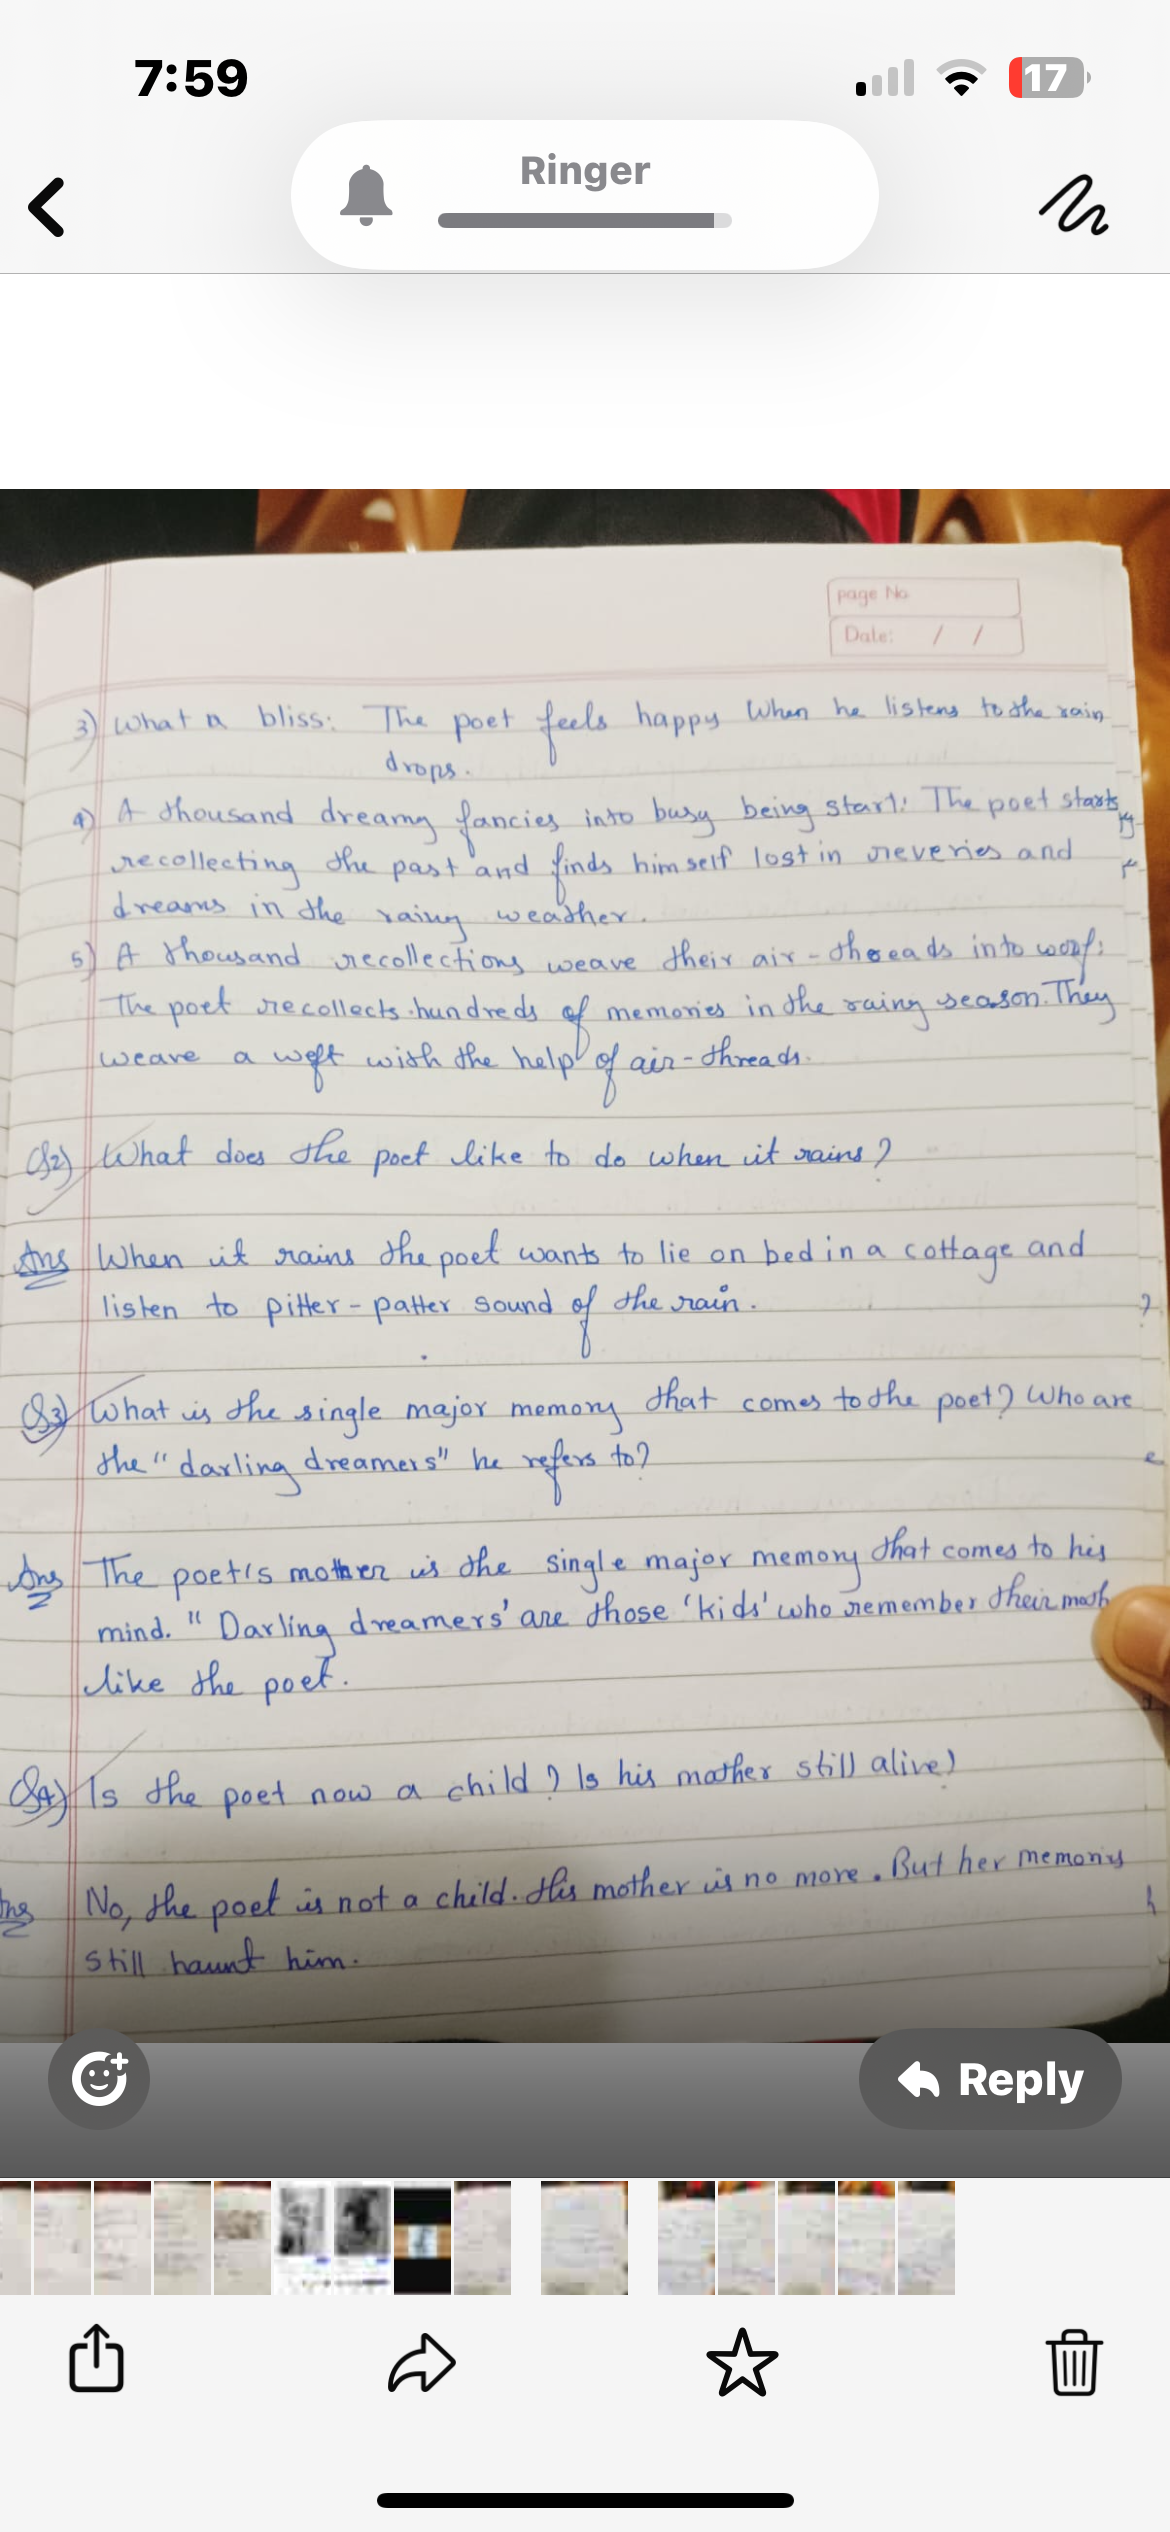 7:59
17
Ringer
page No
Date: / /
3) What a bliss: The poet feels happy When he listens to the rain
drops.
4) A thousand dreamy fancies into busy being start: The poet starts
recollecting the past and finds himself lost in reveries and
dreams in the rainy weather.
5) A thousand recollections weave their air-threads into woof:
The poet recollects hundreds of memories in the rainy season. They
weave a weft with the help of air-threads.
Q2) What does the poet like to do when it rains?
Ans When it rains the poet wants to lie on bed in a cottage and
listen to pitter-patter sound of the rain.
Q3) What is the single major memory that comes to the poet? Who are
the "darling dreamers" he refers to?
Ans The poet's mother is the single major memory that comes to his
mind. "Darling dreamers' are those 'kids' who remember their moth
like the poet.
Q4) Is the poet now a child? Is his mother still alive?
Ans No, the poet is not a child. His mother is no more. But her memories
still haunt him.
Reply